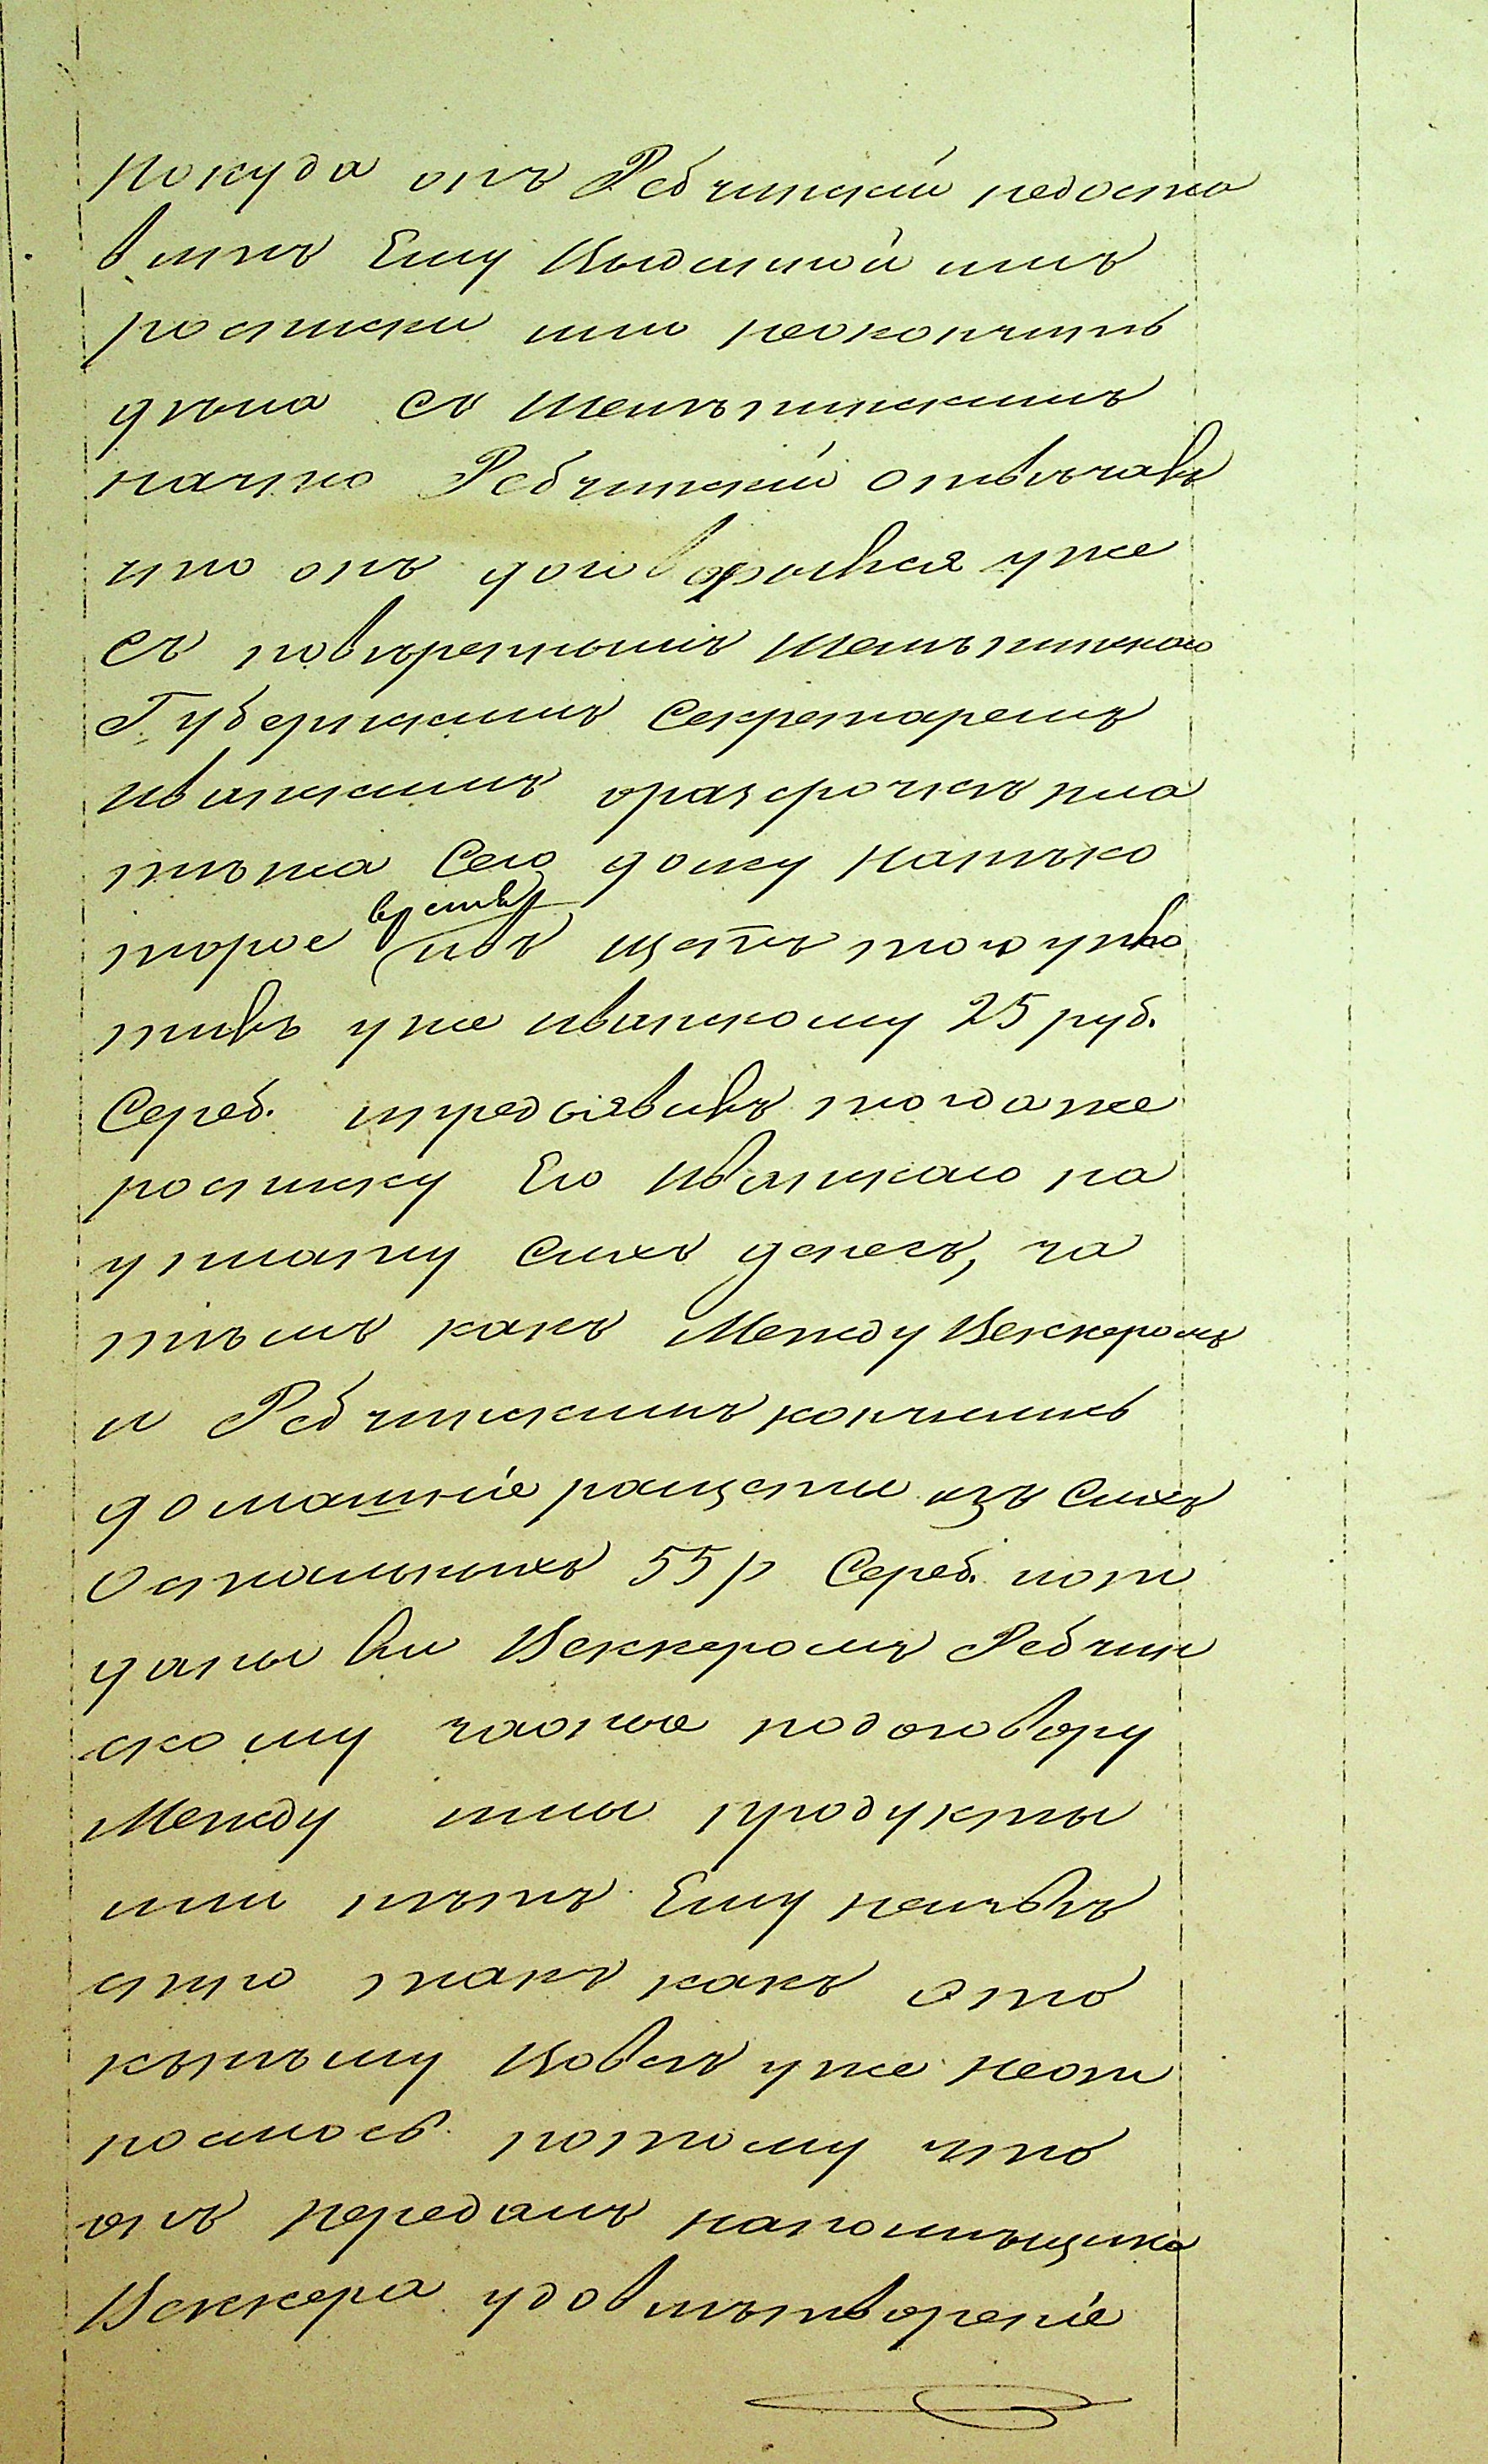 покуда онъ Ребчинскій недоста
витъ Ему Выданной имъ
росписки или неокончитъ
дѣла съ Шемѣтинскимъ
начто Ребчинскій отвѣчавъ
что онъ договорился уже
съ повѣреннымъ Шемѣтинскаго
Губернскимъ Секретаремъ
Ивинскимъ оразсрочкѣ пла
тѣжа Сего долгу натѣко
торое время щетъ того упла
тивъ уже Ивинскому 25 руб.
Сереб. ипредъявивъ тогдаже
росписку Его Ивинскаго на
уплату Сихъ денегъ, за
тѣмъ какъ Между Веккеромъ
и Ребчинскимъ кончились
домашніе ращеты изъ Сихъ
Остальныхъ 55 р Сереб. и от
даны ли Веккеромъ Ребчин
скому заоные подоговору
Между ими продукты
или нѣтъ Ему неизвѣ
стно такъ какъ это
кънѣму Вовсе уже неот
носилось потому что
онъ передалъ напомѣщика
Веккера удовлѣтвореніе